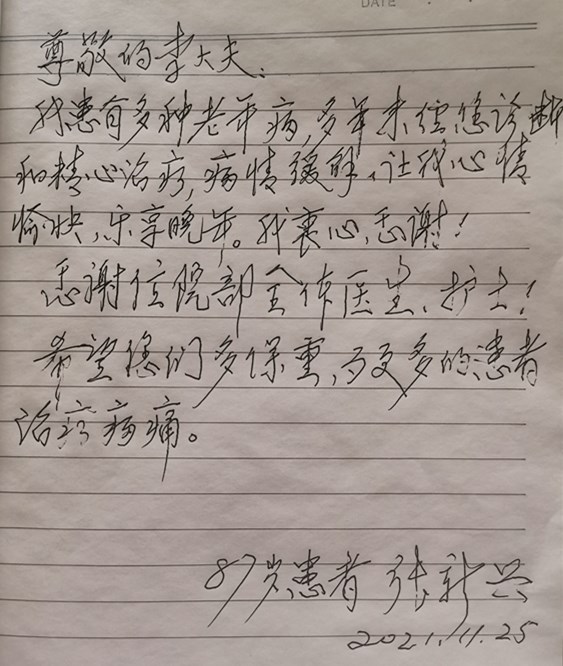 DATE
尊敬的李大夫:
我患有多种老年病,多年来经您诊断
和精心治疗,病情缓解、让我心情
愉快、乐享晚年。我衷心感谢!
感谢住院部全体医生、护士!
希望您们多保重,为更多的患者
治疗病痛。
87岁患者 张新兴
2021.11.25